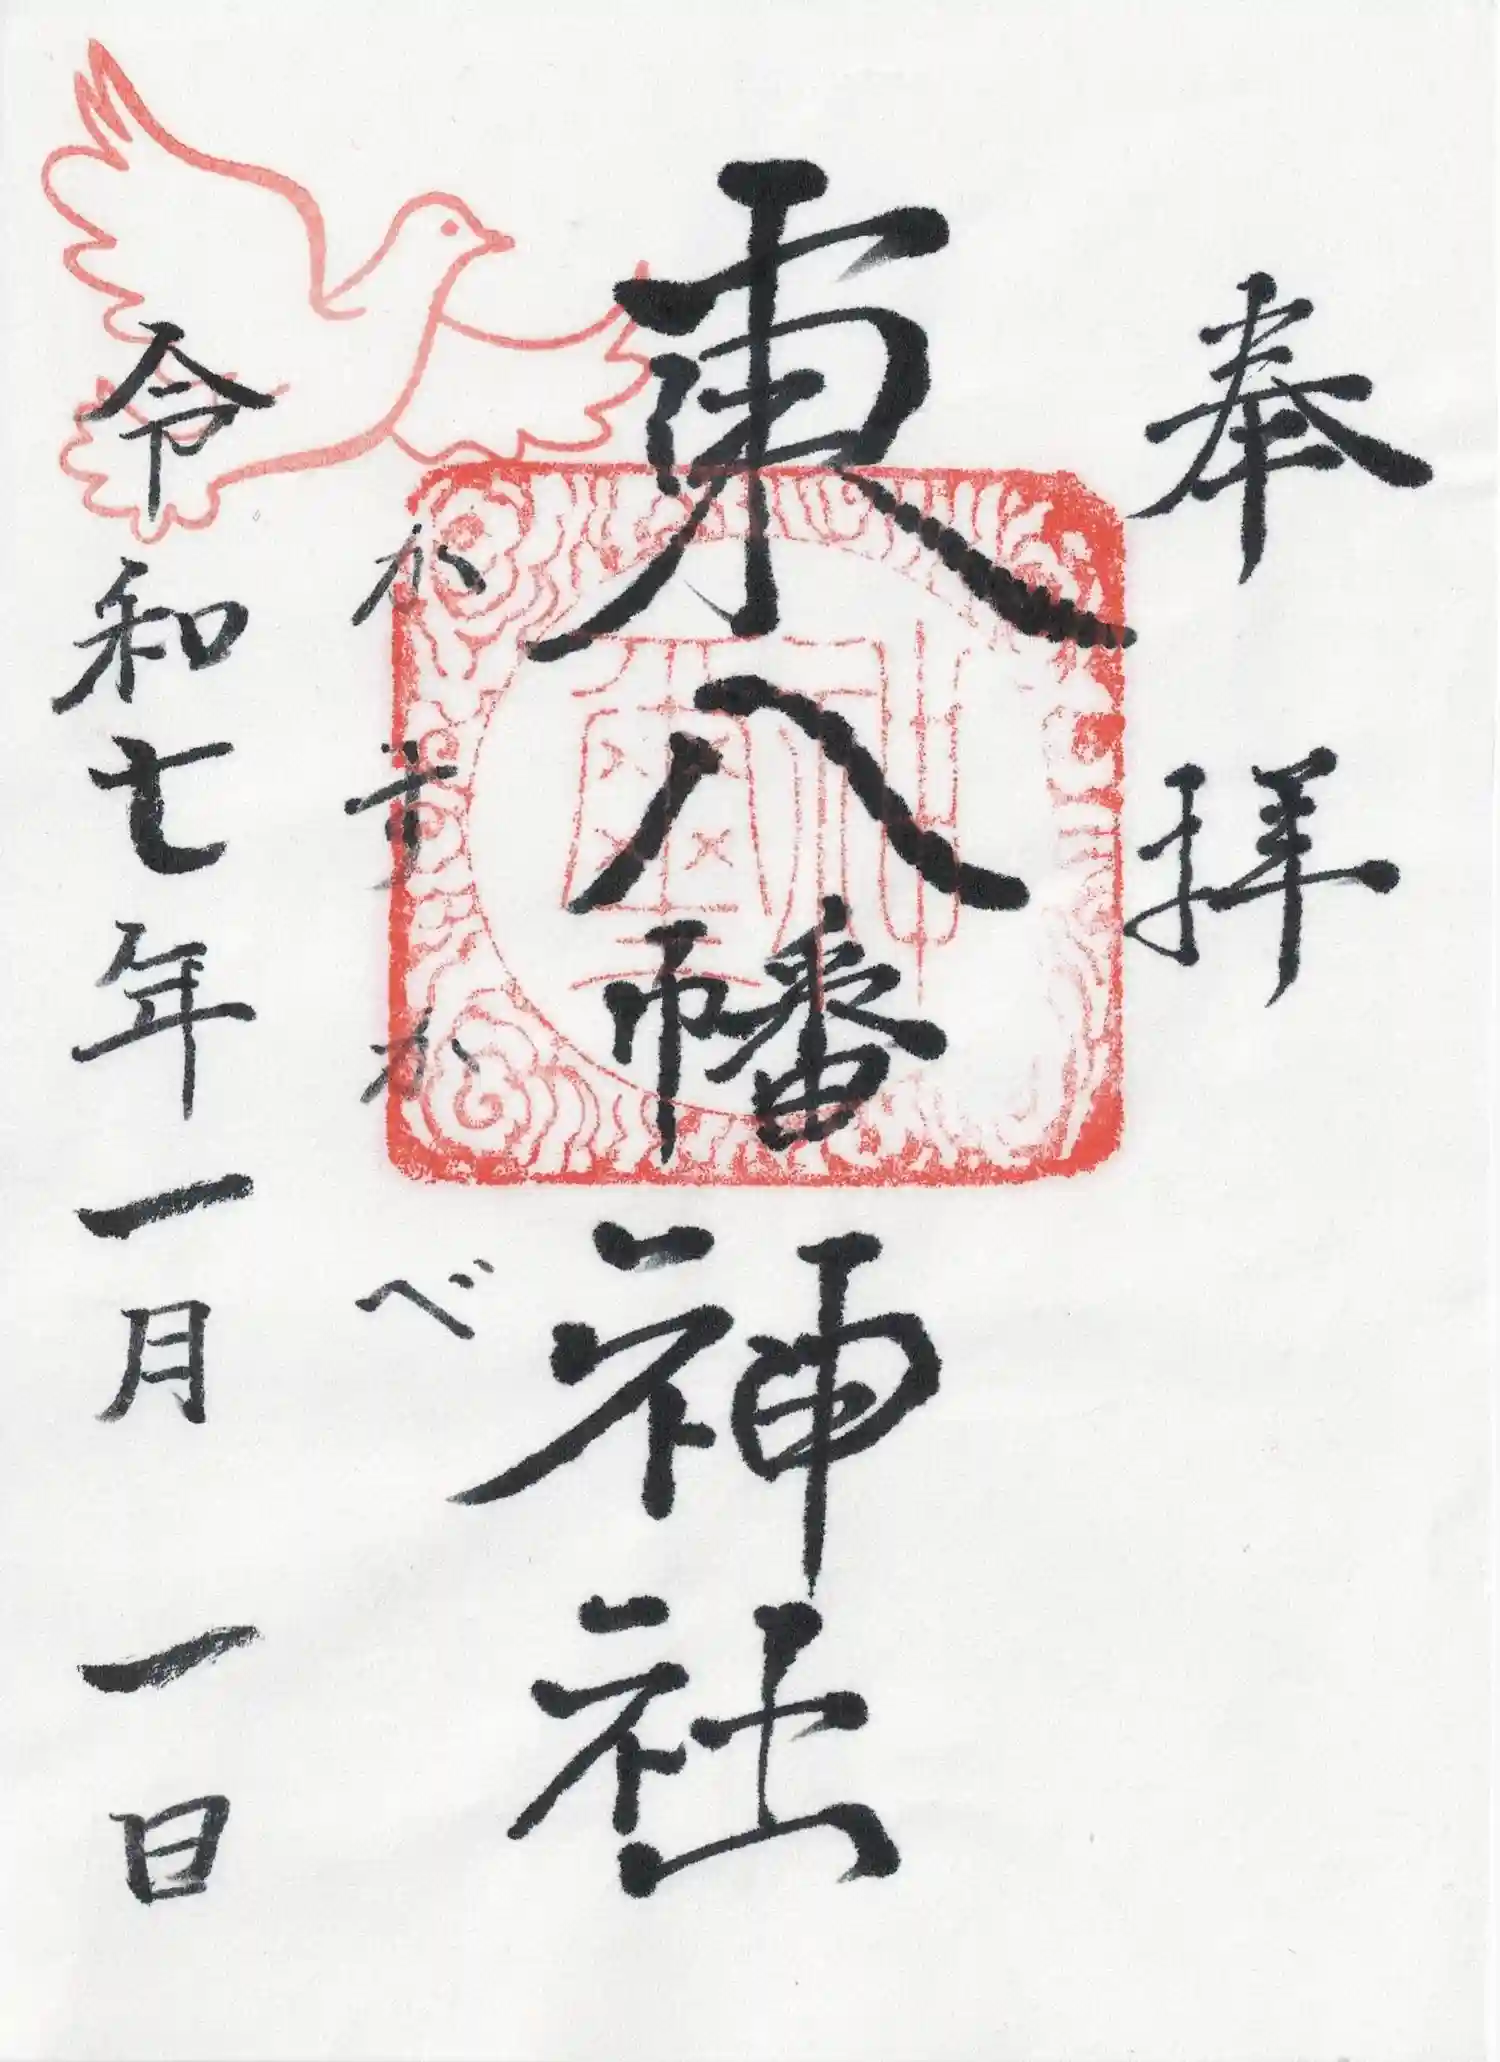 奉拝
東八幡神社
かすかべ
令和七年一月一日